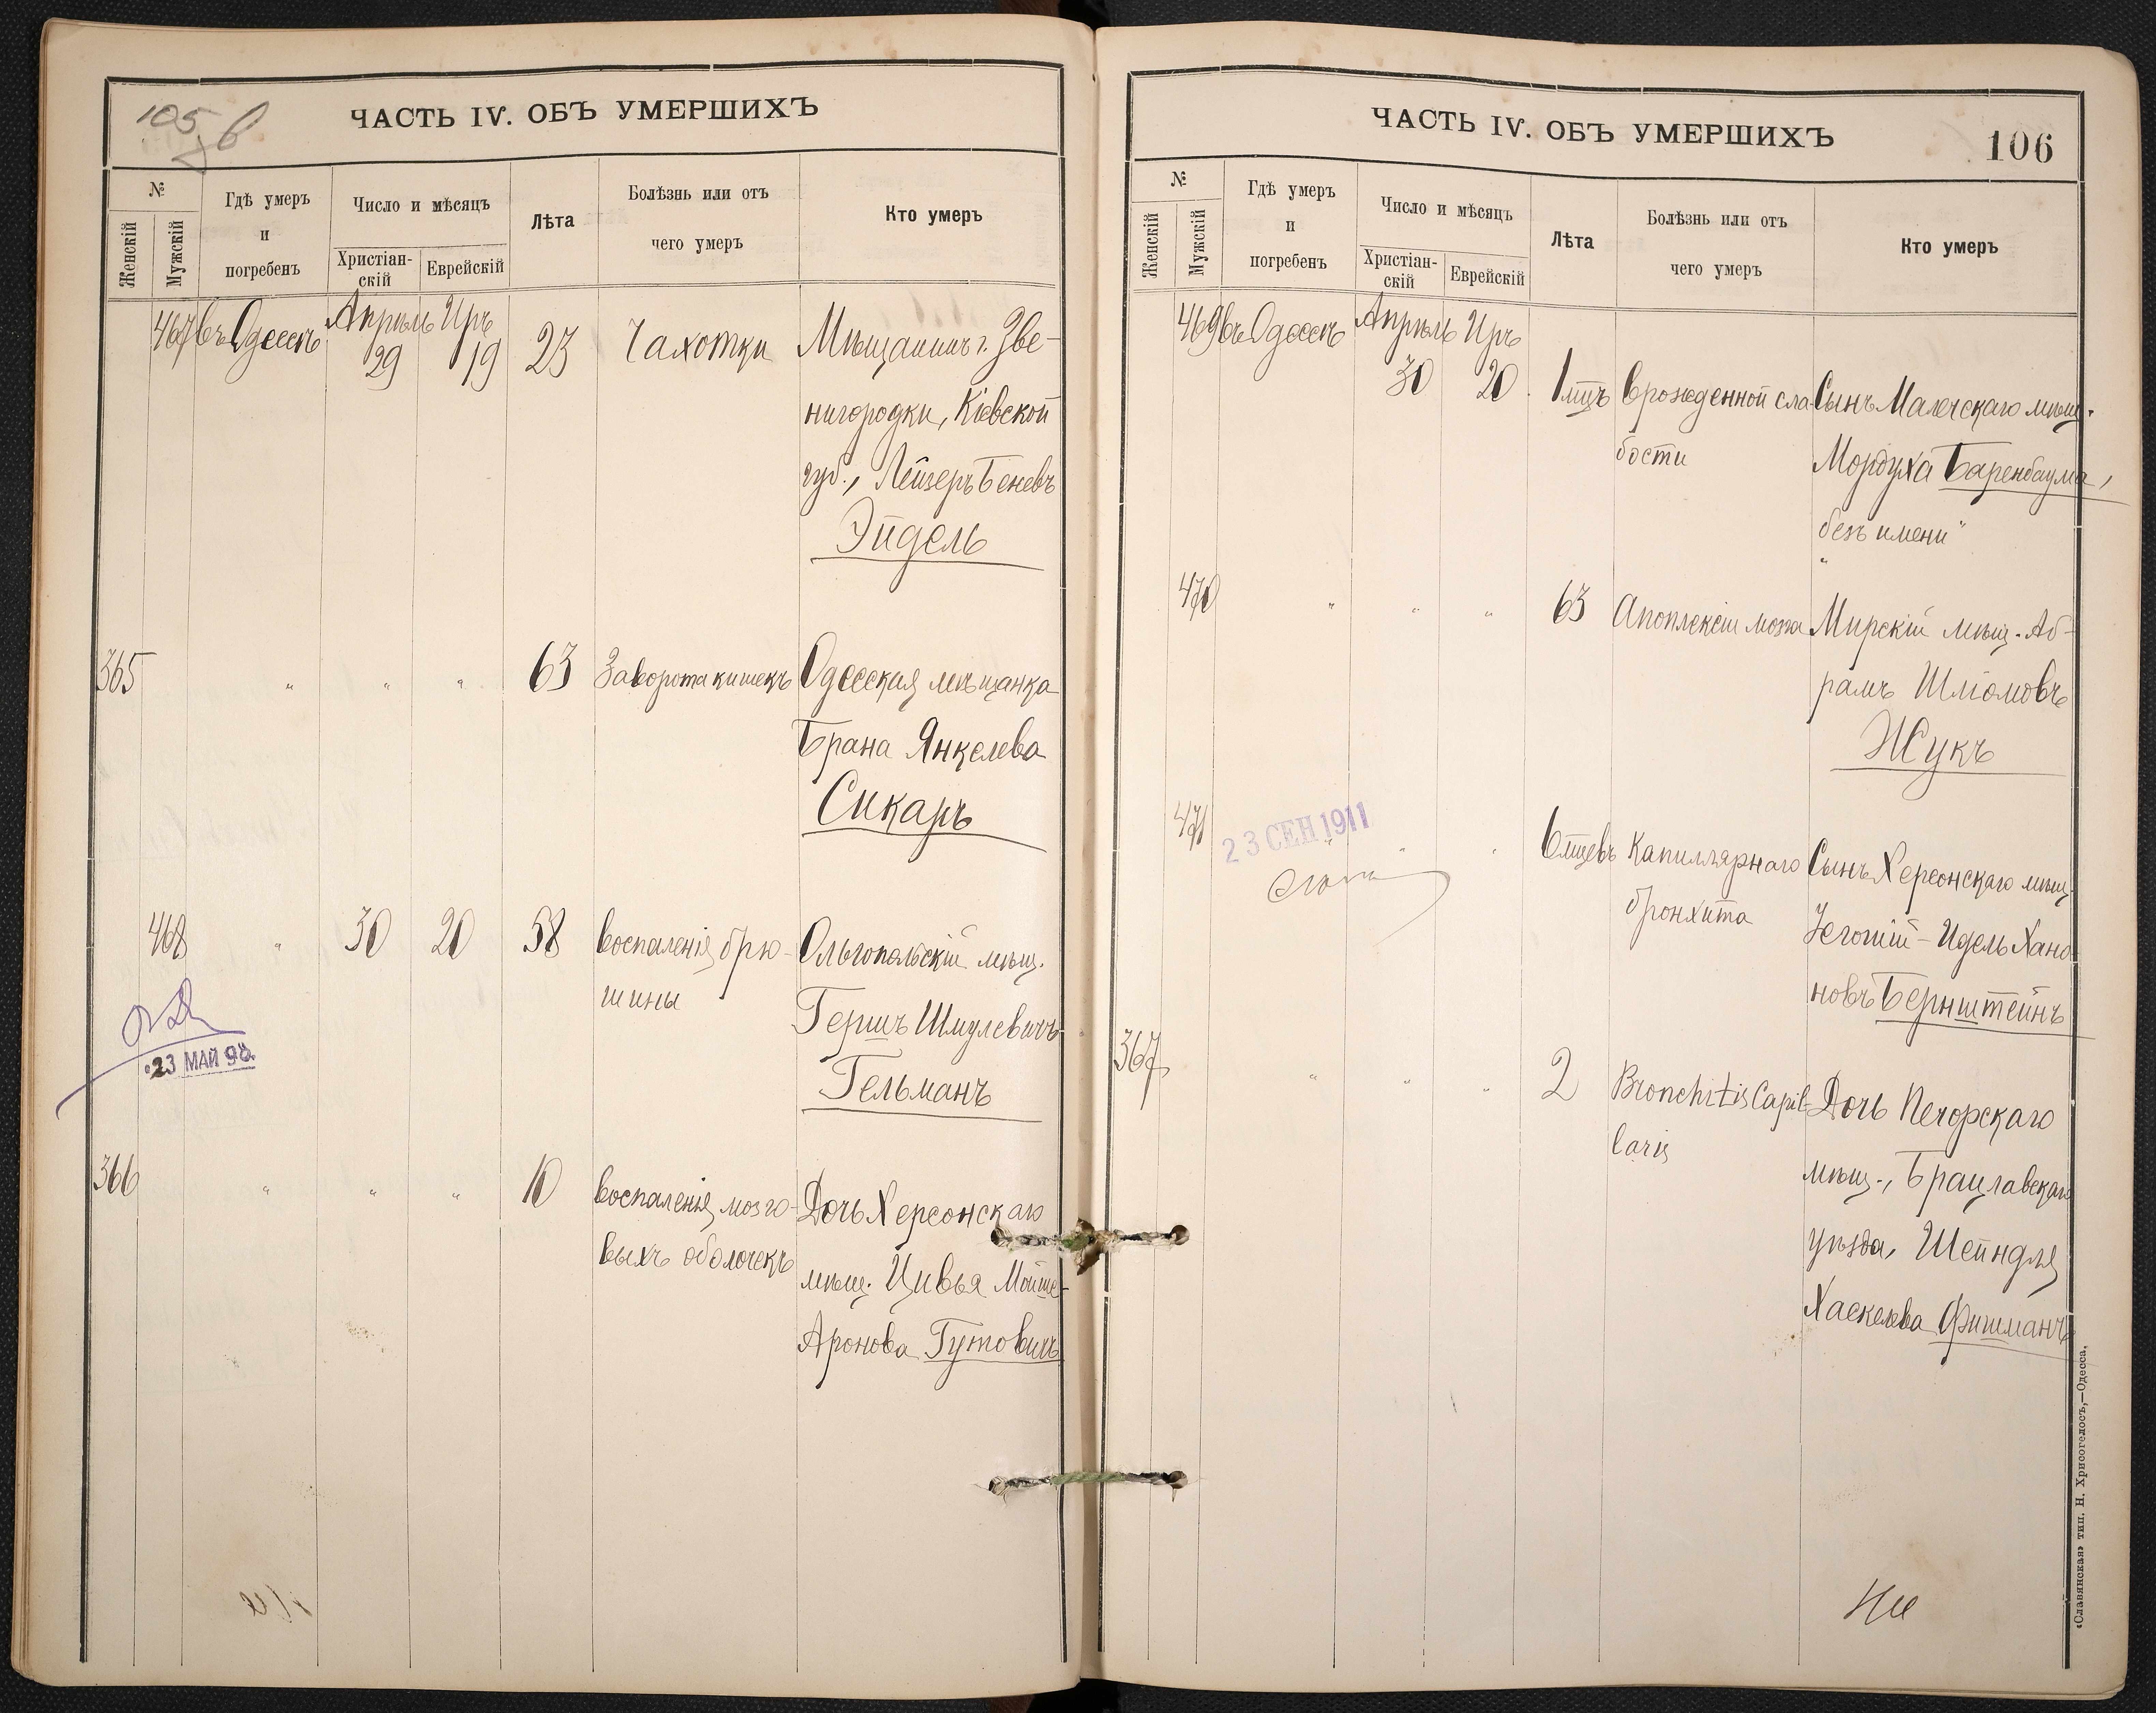 105
ЧАСТЬ IV. ОБЪ УМЕРШИХЪ
№
Женскій
Мужскій
Гдѣ умеръ
и
погребенъ
Число и мѣсяцъ
Христіан-
скій
Еврейскій
Лѣта
Болѣзнь или отъ
чего умеръ
Кто умеръ
467 въ Одессѣ Апрѣль 29 Иръ 19 23 Чахотки Мѣщанинъ г. Зве-
нигородки, Кіевской
губ., Лейзеръ Беневъ
Эйдель
365 " " " 63 Заворота кишекъ Одесская мѣщанка
Брана Янкелева
Сикаръ
468 " 30 20 58 Воспаленія брю- Ольгопольскій мѣщ.
шины Гершъ Шмулевичъ
Гельманъ
23 МАЙ 98
366 " " " 10 Воспаленія мозго- Дочь Херсонскаго
выхъ оболочекъ мѣщ. Цивья Мойше-
Аронова Гутовичъ
ЧАСТЬ IV. ОБЪ УМЕРШИХЪ
106
№
Женскій
Мужскій
Гдѣ умеръ
и
погребенъ
Число и мѣсяцъ
Христіан-
скій
Еврейскій
Лѣта
Болѣзнь или отъ
чего умеръ
Кто умеръ
469 въ Одессѣ Апрѣль 30 Иръ 20 1 мцъ Врожденной сла- Сынъ Малечскаго мѣщ.
бости Мордуха Баренбаума,
безъ имени "
470 " " " 63 Апоплексіи мозга Мирскій мѣщ. Аб-
рамъ Шлiомовъ
Жукъ
471 " " " 6 мцевъ Капиллярнаго Сынъ Херсонскаго мѣщ.
бронхита Іегошій-Идель Хано-
новъ Бернштейнъ
23 СЕН 1911
367 " " " 2 Bronchitis Capil- Дочь Печорскаго
laris мѣщ., Брацлавскаго
уѣзда, Шейндля
Хаскелева Фишманъ
«Славянская» тип. Н. Хрисогелосъ,—Одесса.